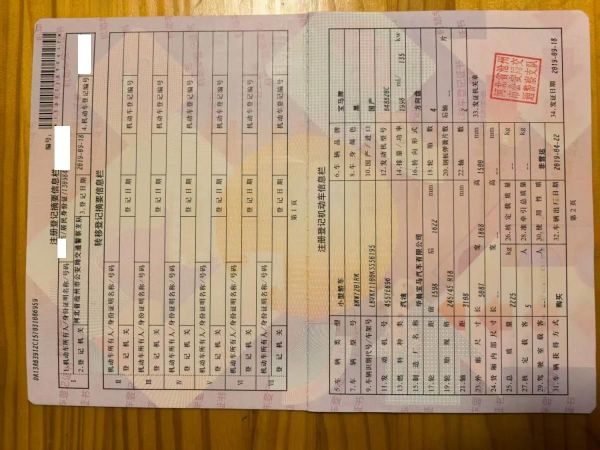 编号:
注册登记摘要信息栏
1.机动车所有人/身份证明名称/号码
/居民身份证/
I
2.登记机关
河北省沧州市公安局交通警察支队
3.登记日期
2019-09-18
4.机动车登记编号
转移登记摘要信息栏
机动车所有人/身份证明名称/号码
II
登记机关
登记日期
机动车登记编号
机动车所有人/身份证明名称/号码
III
登记机关
登记日期
机动车登记编号
机动车所有人/身份证明名称/号码
IV
登记机关
登记日期
机动车登记编号
机动车所有人/身份证明名称/号码
V
登记机关
登记日期
机动车登记编号
机动车所有人/身份证明名称/号码
VI
登记机关
登记日期
机动车登记编号
机动车所有人/身份证明名称/号码
VII
登记机关
登记日期
机动车登记编号
第1页
注册登记机动车信息栏
5.车辆类型 小型轿车 6.车辆品牌 宝马牌
7.车辆型号 8.车身颜色 黑
9.车辆识别代号/车架号 10.国产/进口 国产
11.发动机号 12.发动机型号 B48B20C
13.燃料种类 汽油 14.排量/功率 1998 ml/ 135 kw
15.制造厂名称 华晨宝马汽车有限公司 16.转向形式 方向盘
17.轮距 前 1598 后 1622 mm 18.轮胎数 4
19.轮胎规格 245/45 R18 20.钢板弹簧片数 后轴 片
21.轴距 3108 mm 22.轴数 2
23.外廓尺寸 长 5087 宽 1868 高 1500 mm
24.货厢内部尺寸 长 宽 高 mm
25.总质量 2225 kg 26.核定载质量 kg
27.核定载客 5 人 28.准牵引总质量 kg
29.驾驶室载客 人 30.使用性质 非营运
31.车辆获得方式 购买 32.车辆出厂日期 2019-04-22
33.发证机关章
河北省沧州
市公安局交
通警察支队
34.发证日期 2019-09-18
第2页